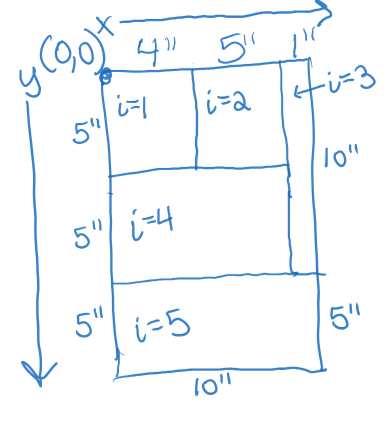 x
y (0,0) 4" 5" 1"
i=1 i=2 i=3
5" 10"
5" i=4
5" i=5 5"
10"